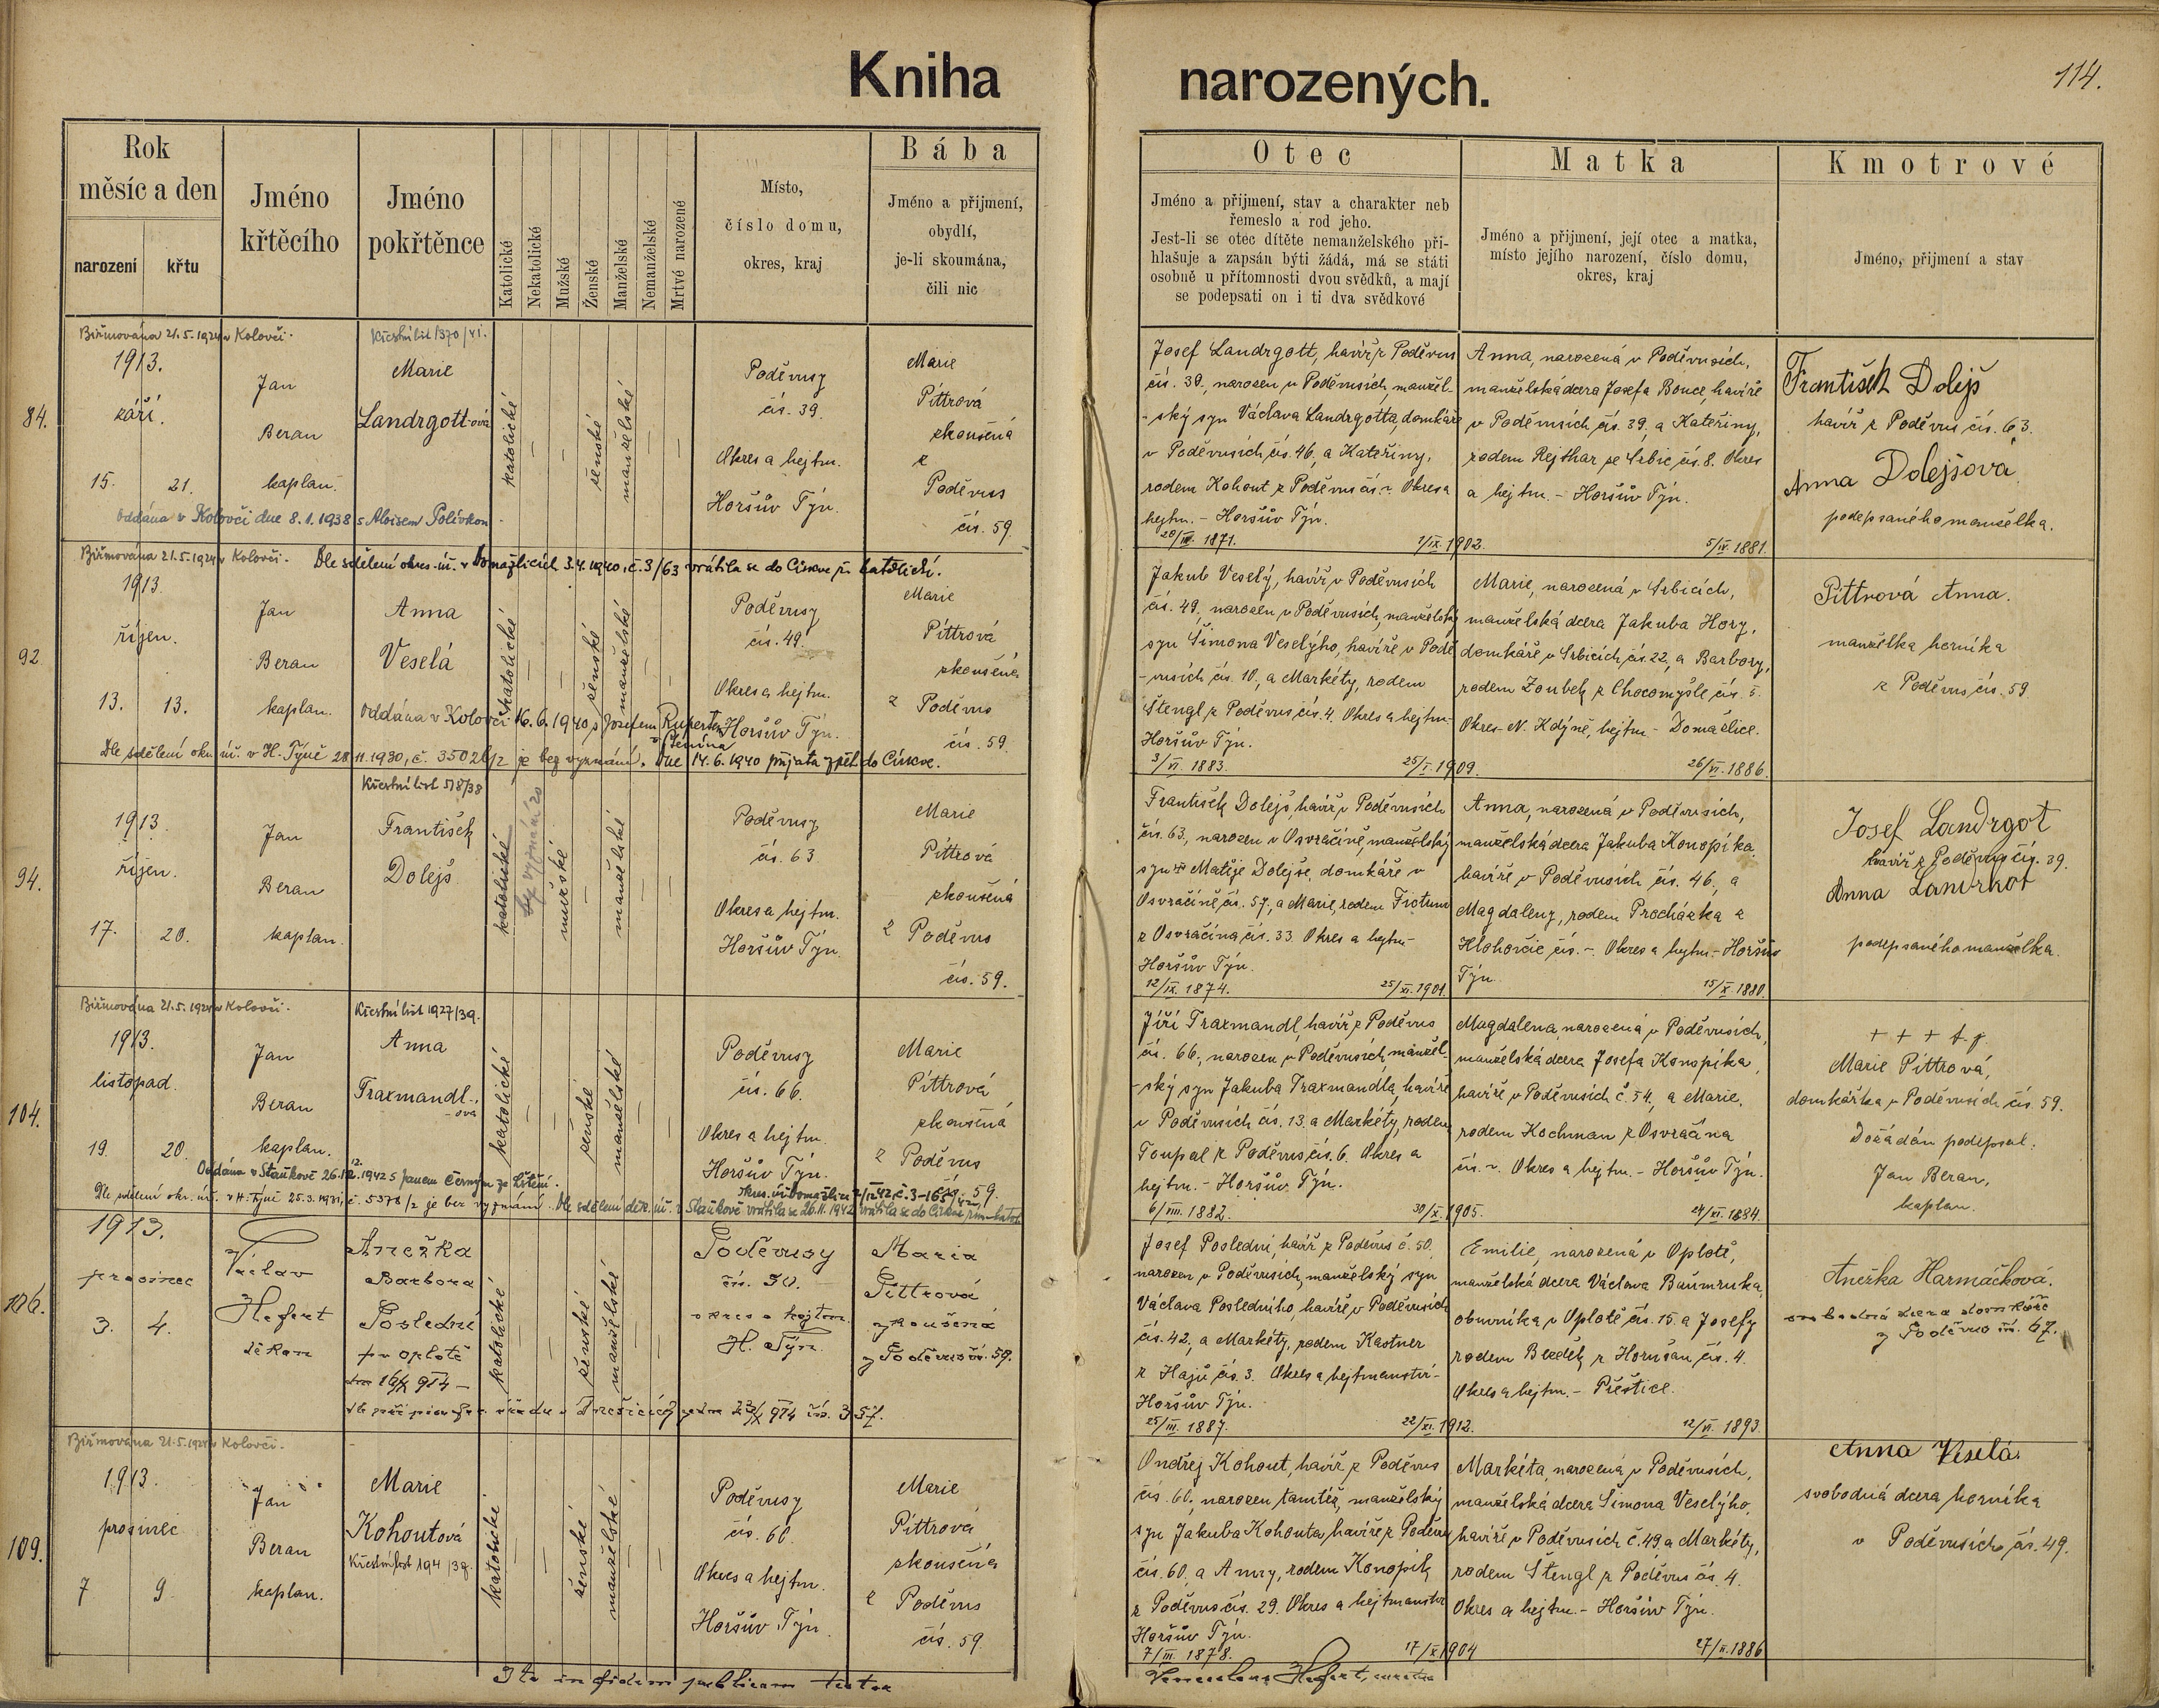 Kniha narozených.
114.
Rok
měsíc a den
narození
křtu
Jméno
křtěcího
Jméno
pokřtěnce
Katolické
Nekatolické
Mužské
Ženské
Manželské
Nemanželské
Mrtvé narozené
Místo,
číslo domu,
okres, kraj
Bába
Jméno a přijmení,
obydlí,
je-li skoumána,
čili nic
Otec
Jméno a přijmení, stav a charakter neb
řemeslo a rod jeho.
Jest-li se otec dítěte nemanželského při-
hlašuje a zapsán býti žádá, má se státi
osobně u přítomnosti dvou svědkŭ, a mají
se podepsati on i ti dva svědkové
Matka
Jméno a přijmení, její otec a matka,
místo jejího narození, číslo domu,
okres, kraj
Kmotrové
Jméno, přijmení a stav
Biřmována 21.5.1924 v Kolovči.
Křestní list 1370/41.
84.
1913.
září.
15. 21.
Jan
Beran
kaplan.
Marie
Landrgott-ová
katolické
ženské
manželské
Poděvusy
čís. 39.
Okres a hejtm.
Horšův Týn.
Marie
Pittrová
zkoušená
z
Poděvus
čís. 59.
oddána v Kolovči dne 8.1.1938 s Aloisem Polívkou
Josef Landrgott, havíř z Poděvus
čís. 39., narozen v Poděvusích, manžel-
-ský syn Václava Landrgotta, domkáře
v Poděvusích čís. 46, a Kateřiny,
rodem Kohout z Poděvus čís. -. Okres a
hejtm. - Horšův Týn.
20/III. 1871.
1/IX. 1902.
Anna, narozená v Poděvusích,
manželská dcera Josefa Bouce, havíře
v Poděvusích čís. 39, a Kateřiny,
rodem Rejthar ze Srbic čís. 8. Okres
a hejtm. - Horšův Týn.
5/IV. 1881.
František Dolejš
havíř z Poděvus čís. 63.
Anna Dolejšova
podepsaného manželka.
Biřmována 21.5.1924 v Kolovči.
Dle sdělení okres. úř. v Domažlicích 3.4.1940, č. 3/63 vrátila se do Církve ř. katolické.
92.
1913.
říjen.
13. 13.
Jan
Beran
kaplan.
Anna
Veselá
katolické
ženské
manželské
Poděvusy
čís. 49.
Okres a hejtm.
Horšův Týn.
Marie
Pittrová
zkoušená
z Poděvus
čís. 59.
oddána v Kolovči 16.6.1940 s Josefem Rupertem
Dle sdělení okr. úř. v H. Týně 28.11.1930, č. 35026/2 je bez vyznání. Dne 14.6.1940 přijata zpět do Církve.
Jakub Veselý, havíř v Poděvusích
čís. 49, narozen v Poděvusích, manželský
syn Šimona Veselýho, havíře v Podě
-vusích čís. 10, a Markéty, rodem
Štengl z Poděvus čís. 4. Okres a hejtm. -
Horšův Týn.
3/VI. 1883.
25/I. 1909.
Marie, narozená v Srbicích,
manželská dcera Jakuba Hory,
domkáře v Srbicích čís. 22, a Barbory,
rodem Zoubek z Chocomyšle čís. 5.
Okres - N. Kdýně, hejtm. - Domažlice.
26/VI. 1886.
Pittrová Anna.
manželka horníka
z Poděvus čís. 59
Křestní list 518/38
94.
1913.
říjen.
17. 20.
Jan
Beran
kaplan.
František
Dolejš
katolické
bez vyznání
mužské
manželské
Poděvusy
čís. 63.
Okres a hejtm.
Horšův Týn.
Marie
Pittrová
zkoušená
z Poděvus
čís. 59.
František Dolejš, havíř v Poděvusích
čís. 63, narozen v Osvračíně, manželský
syn Matěje Dolejše, domkáře v
Osvračíně čís. 57, a Marie, rodem Fictum
z Osvračína čís. 33. Okres a hejtm. -
Horšův Týn.
12/IX. 1874.
25/XI. 1901.
Anna, narozená v Poděvusích,
manželská dcera Jakuba Konopíka,
havíře v Poděvusích čís. 46, a
Magdaleny, rodem Procházka z
Hlohovčic čís. -. Okres a hejtm. - Horšův
Týn.
15/X. 1880.
Josef Landrgot
havíř z Poděvus čís. 39.
Anna Landrkot
podepsaného manželka.
Biřmována 21.5.1924 v Kolovči.
Křestní list 1927/39.
104.
1913.
listopad.
19. 20.
Jan
Beran
kaplan.
Anna
Traxmandl-
-ova
katolické
ženské
manželské
Poděvusy
čís. 66.
Okres a hejtm.
Horšův Týn.
Marie
Pittrová
zkoušená
z Poděvus
čís. 59.
Oddána v Staňkově 26.12.1942 s Janem Černým
Dle sdělení okr. úř. v H. Týně 25.3.1931, č. 5378/2 je bez vyznání. Dle sdělení děk. úř. v Staňkově vrátila se 26.11.1942
Jiří Traxmandl, havíř z Poděvus
čís. 66., narozen v Poděvusích, manžel-
-ský syn Jakuba Traxmandla, havíře
v Poděvusích čís. 13. a Markéty, rodem
Toupal z Poděvus čís. 6. Okres a
hejtm. - Horšův Týn.
6/VIII. 1882.
30/X. 1905.
Magdalena, narozená v Poděvusích,
manželská dcera Josefa Konopíka,
havíře v Poděvusích č. 54, a Marie,
rodem Kochman z Osvračína
čís. -. Okres a hejtm. - Horšův Týn.
24/XI. 1884.
+ + +
Marie Pittrová,
domkářka v Poděvusích čís. 59.
Dožádán podepsal:
Jan Beran,
kaplan.
106.
1913.
prosinec
3. 4.
Václav
Hefert
děkan
Anežka
Barbora
Poslední
katolické
ženské
manželské
Poděvusy
čís. 50.
okres a hejtm.
H. Týn.
Maria
Pittrová
zkoušená
z Poděvus č. 59.
Josef Poslední, havíř z Poděvus č. 50,
narozen v Poděvusích, manželský syn
Václava Posledního, havíře v Poděvusích
čís. 42, a Markéty, rodem Kastner
z Hájů čís. 3. Okres a hejtmanství -
Horšův Týn.
25/III. 1887.
22/XI. 1912.
Emilie, narozená v Oplotě,
manželská dcera Václava Baumruka,
obuvníka v Oplotě čís. 15. a Josefy
rodem Bezděk z Horušan čís. 4.
Okres a hejtm. - Přeštice.
12/VI. 1893.
Anežka Harmáčková.
svobodná dcera domkáře
z Poděvus č. 67.
Biřmována 21.5.1924 v Kolovči.
109.
1913.
prosinec
7 9.
Jan
Beran
kaplan.
Marie
Kohoutová
Křestní list 194/39.
katolické
ženské
manželské
Poděvusy
čís. 60.
Okres a hejtm.
Horšův Týn.
Marie
Pittrová
zkoušená
z Poděvus
čís. 59.
Ondřej Kohout, havíř z Poděvus
čís. 60, narozen tamtéž, manželský
syn Jakuba Kohouta, havíře z Poděvus
čís. 60, a Anny, rodem Konopík
z Poděvus čís. 29. Okres a hejtmanství
Horšův Týn.
7/III. 1878.
17/X. 1904
Markéta, narozená v Poděvusích,
manželská dcera Šimona Veselýho,
havíře v Poděvusích č. 49 a Markéty,
rodem Štengl z Poděvus čís. 4.
Okres a hejtm. - Horšův Týn.
27/II. 1886
Anna Veselá.
svobodná dcera horníka
v Poděvusích čís. 49.
Ita in fidem publicam testor
Venceslaus Hefert,